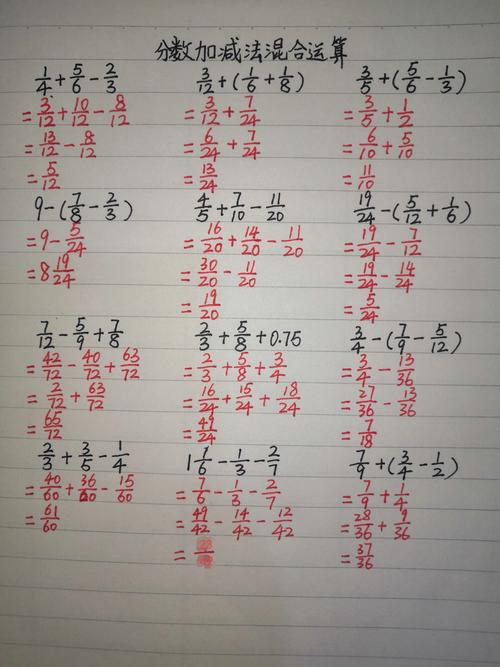 分数加减法混合运算
1/4+5/6-2/3
=3/12+10/12-8/12
=13/12-8/12
=5/12
3/12+(1/6+1/8)
=3/12+7/24
=6/24+7/24
=13/24
3/5+(5/6-1/3)
=3/5+1/2
=6/10+5/10
=11/10
9-(7/8-2/3)
=9-5/24
=8 19/24
4/5+7/10-11/20
=16/20+14/20-11/20
=30/20-11/20
=19/20
19/24-(5/12+1/6)
=19/24-7/12
=19/24-14/24
=5/24
7/12-5/9+7/8
=42/72-40/72+63/72
=2/72+63/72
=65/72
2/3+5/8+0.75
=2/3+5/8+3/4
=16/24+15/24+18/24
=49/24
3/4-(7/9-5/12)
=3/4-13/36
=27/36-13/36
=7/18
2/3+3/5-1/4
=40/60+36/60-15/60
=61/60
1 1/6-1/3-2/7
=7/6-1/3-2/7
=49/42-14/42-12/42
=
7/9+(3/4-1/2)
=7/9+1/4
=28/36+9/36
=37/36